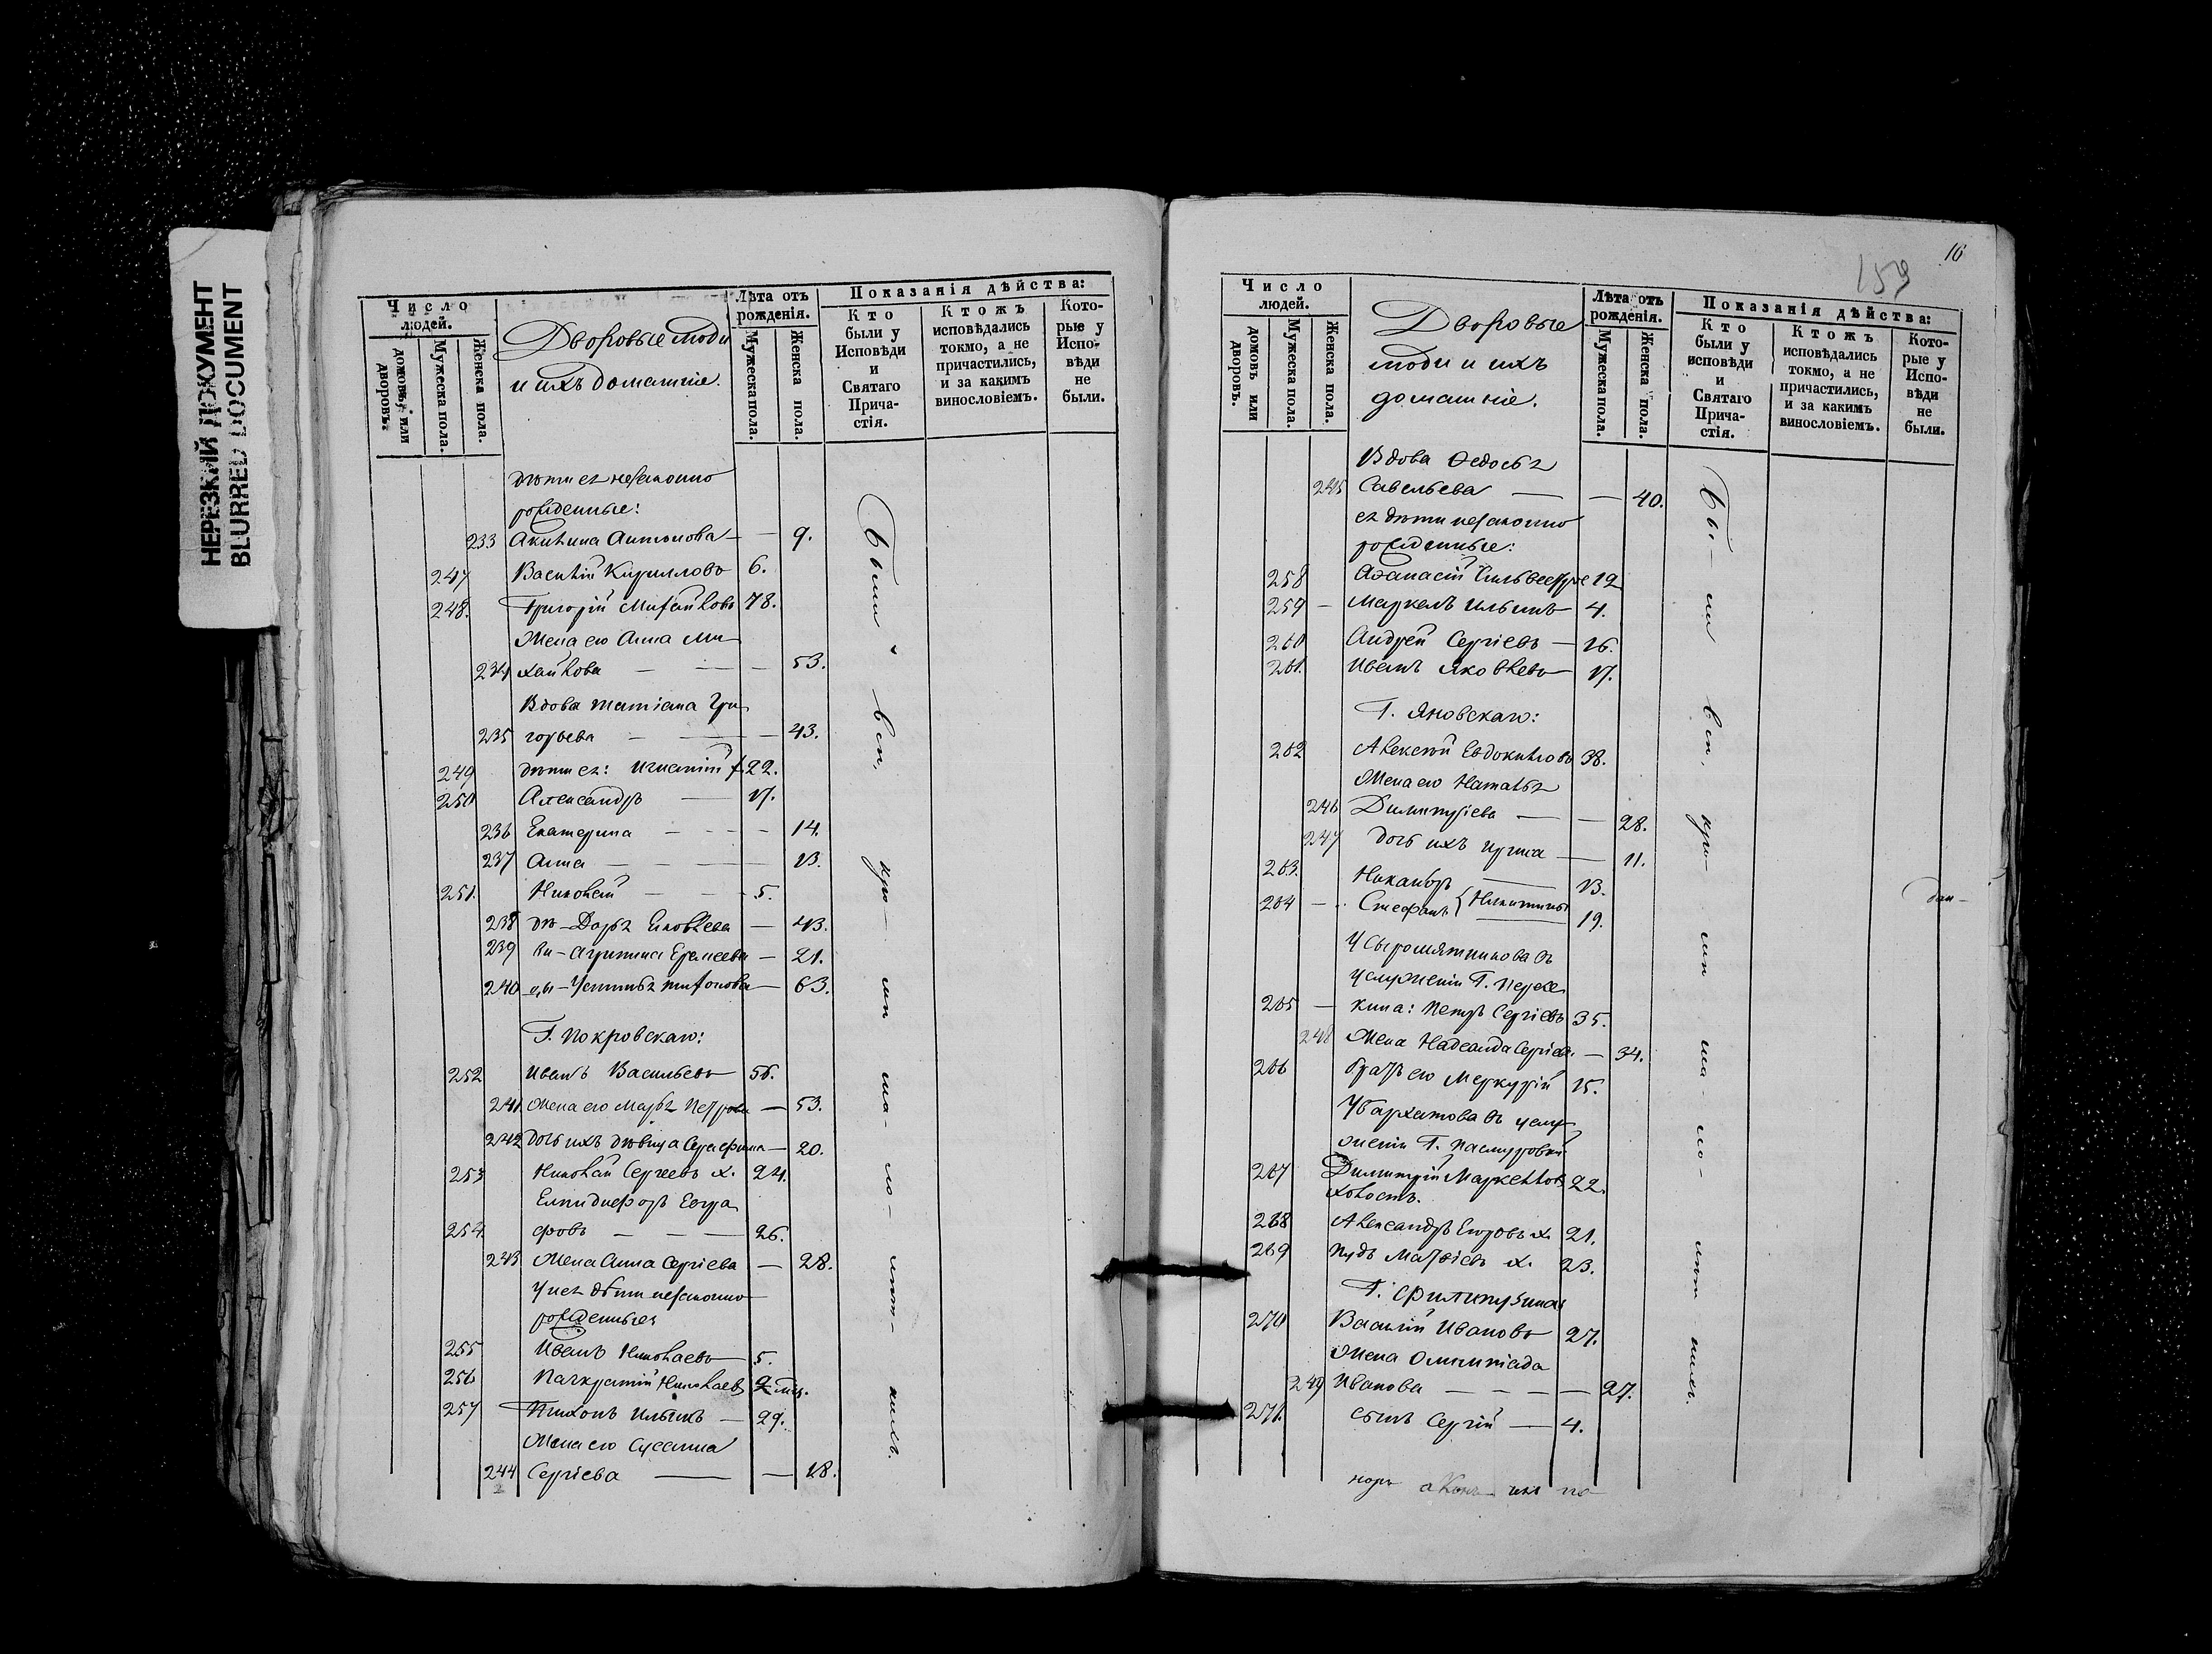 НЕРЕЗКИЙ ДОКУМЕНТ
BLURRED DOCUMENT
Число людей.
домовъ, или дворовъ.
Мужеска пола.
Женска пола.
Дворовые люди
и ихъ домашніе.
Лѣта отъ рожденія.
Мужеска пола.
Женска пола.
Показанія дѣйства:
Кто были у Исповѣди и Святаго Причастія.
Ктожъ исповѣдались токмо, а не причастились, и за какимъ винословіемъ.
Которые у Исповѣди не были.
дѣти ея незаконно
рожденные:
233 Акилина Антонова — — 9.
247 Василій Кирилловъ 6.
248. Григорій Михайловъ 78.
Жена его Анна Ми
234 хайлова — — — 53.
Вдова Татіана Гри
235 горьева — — — 43.
249 дѣти ея: Игнатій 22.
250 Александръ — 17.
236 Екатерина — — — 14.
237 Анна — — — 13.
251. Николай — — 5.
238 Дарья Яковлева — 43.
239 Агрипина Еремеева — 21.
240 Устинья Тихонова — 63.
Г. Покровскаго:
252 Иванъ Васильевъ 56.
241. Жена его Марья Петрова — 53.
242 дочь ихъ дѣвица Серафима — 20.
253 Николай Сергеевъ х. 24.
Елпидифоръ Евгра
254. фовъ — — — 26.
243 Жена Анна Сергіева — 28.
У нея дѣти незаконно
рожденные
255 Иванъ Николаевъ 5.
256 Панкратій Николаевъ
257 Тихонъ Ильинъ — 29.
Жена его Сусанна
244 Сергіева — — 18.
Были
16
159
Число людей.
домовъ или дворовъ.
Мужеска пола.
Женска пола.
Дворовые
люди и ихъ
домашніе.
Лѣта отъ рожденія.
Мужеска пола.
Женска пола.
Показанія дѣйства:
Кто были у исповѣди и Святаго Причастія.
Ктожъ исповѣдались токмо, а не причастились, и за какимъ винословіемъ.
Которые у Исповѣди не были.
Вдова Ѳедосья
245 Савельева — — 40.
ея дѣти незаконно
рожденные:
258 Аѳанасій 12
259 — Маркелъ Ильинъ 4.
260 Андрей Сергіевъ — 16.
261. Иванъ Яковлевъ 17.
Г. Яновскаго:
262 Алексѣй Евдокимовъ 38.
Жена его Наталья
246 Димитріева — — 28.
247 дочь ихъ Ирина — 11.
263. Никаноръ — 13.
264 — Стефанъ { Никитины 19.
У Сыромятникова въ
услуженіи Г. Пере
265 — кина: Петръ Сергіевъ 35.
248 Жена Надежда Сергіева — 34.
266 братъ его Меркурій 15.
У Бархатова въ услу
женіи Г.
267 Димитрій Маркелловъ 22.
холостъ.
268 Александръ Егоровъ х. 21.
269 Пудъ Матѳіевъ х. 23.
Г.
270 Василій Ивановъ 27.
Жена Олимпіада
249 Иванова — — — — 27.
271. сынъ Сергій — 4.
Бы-ли